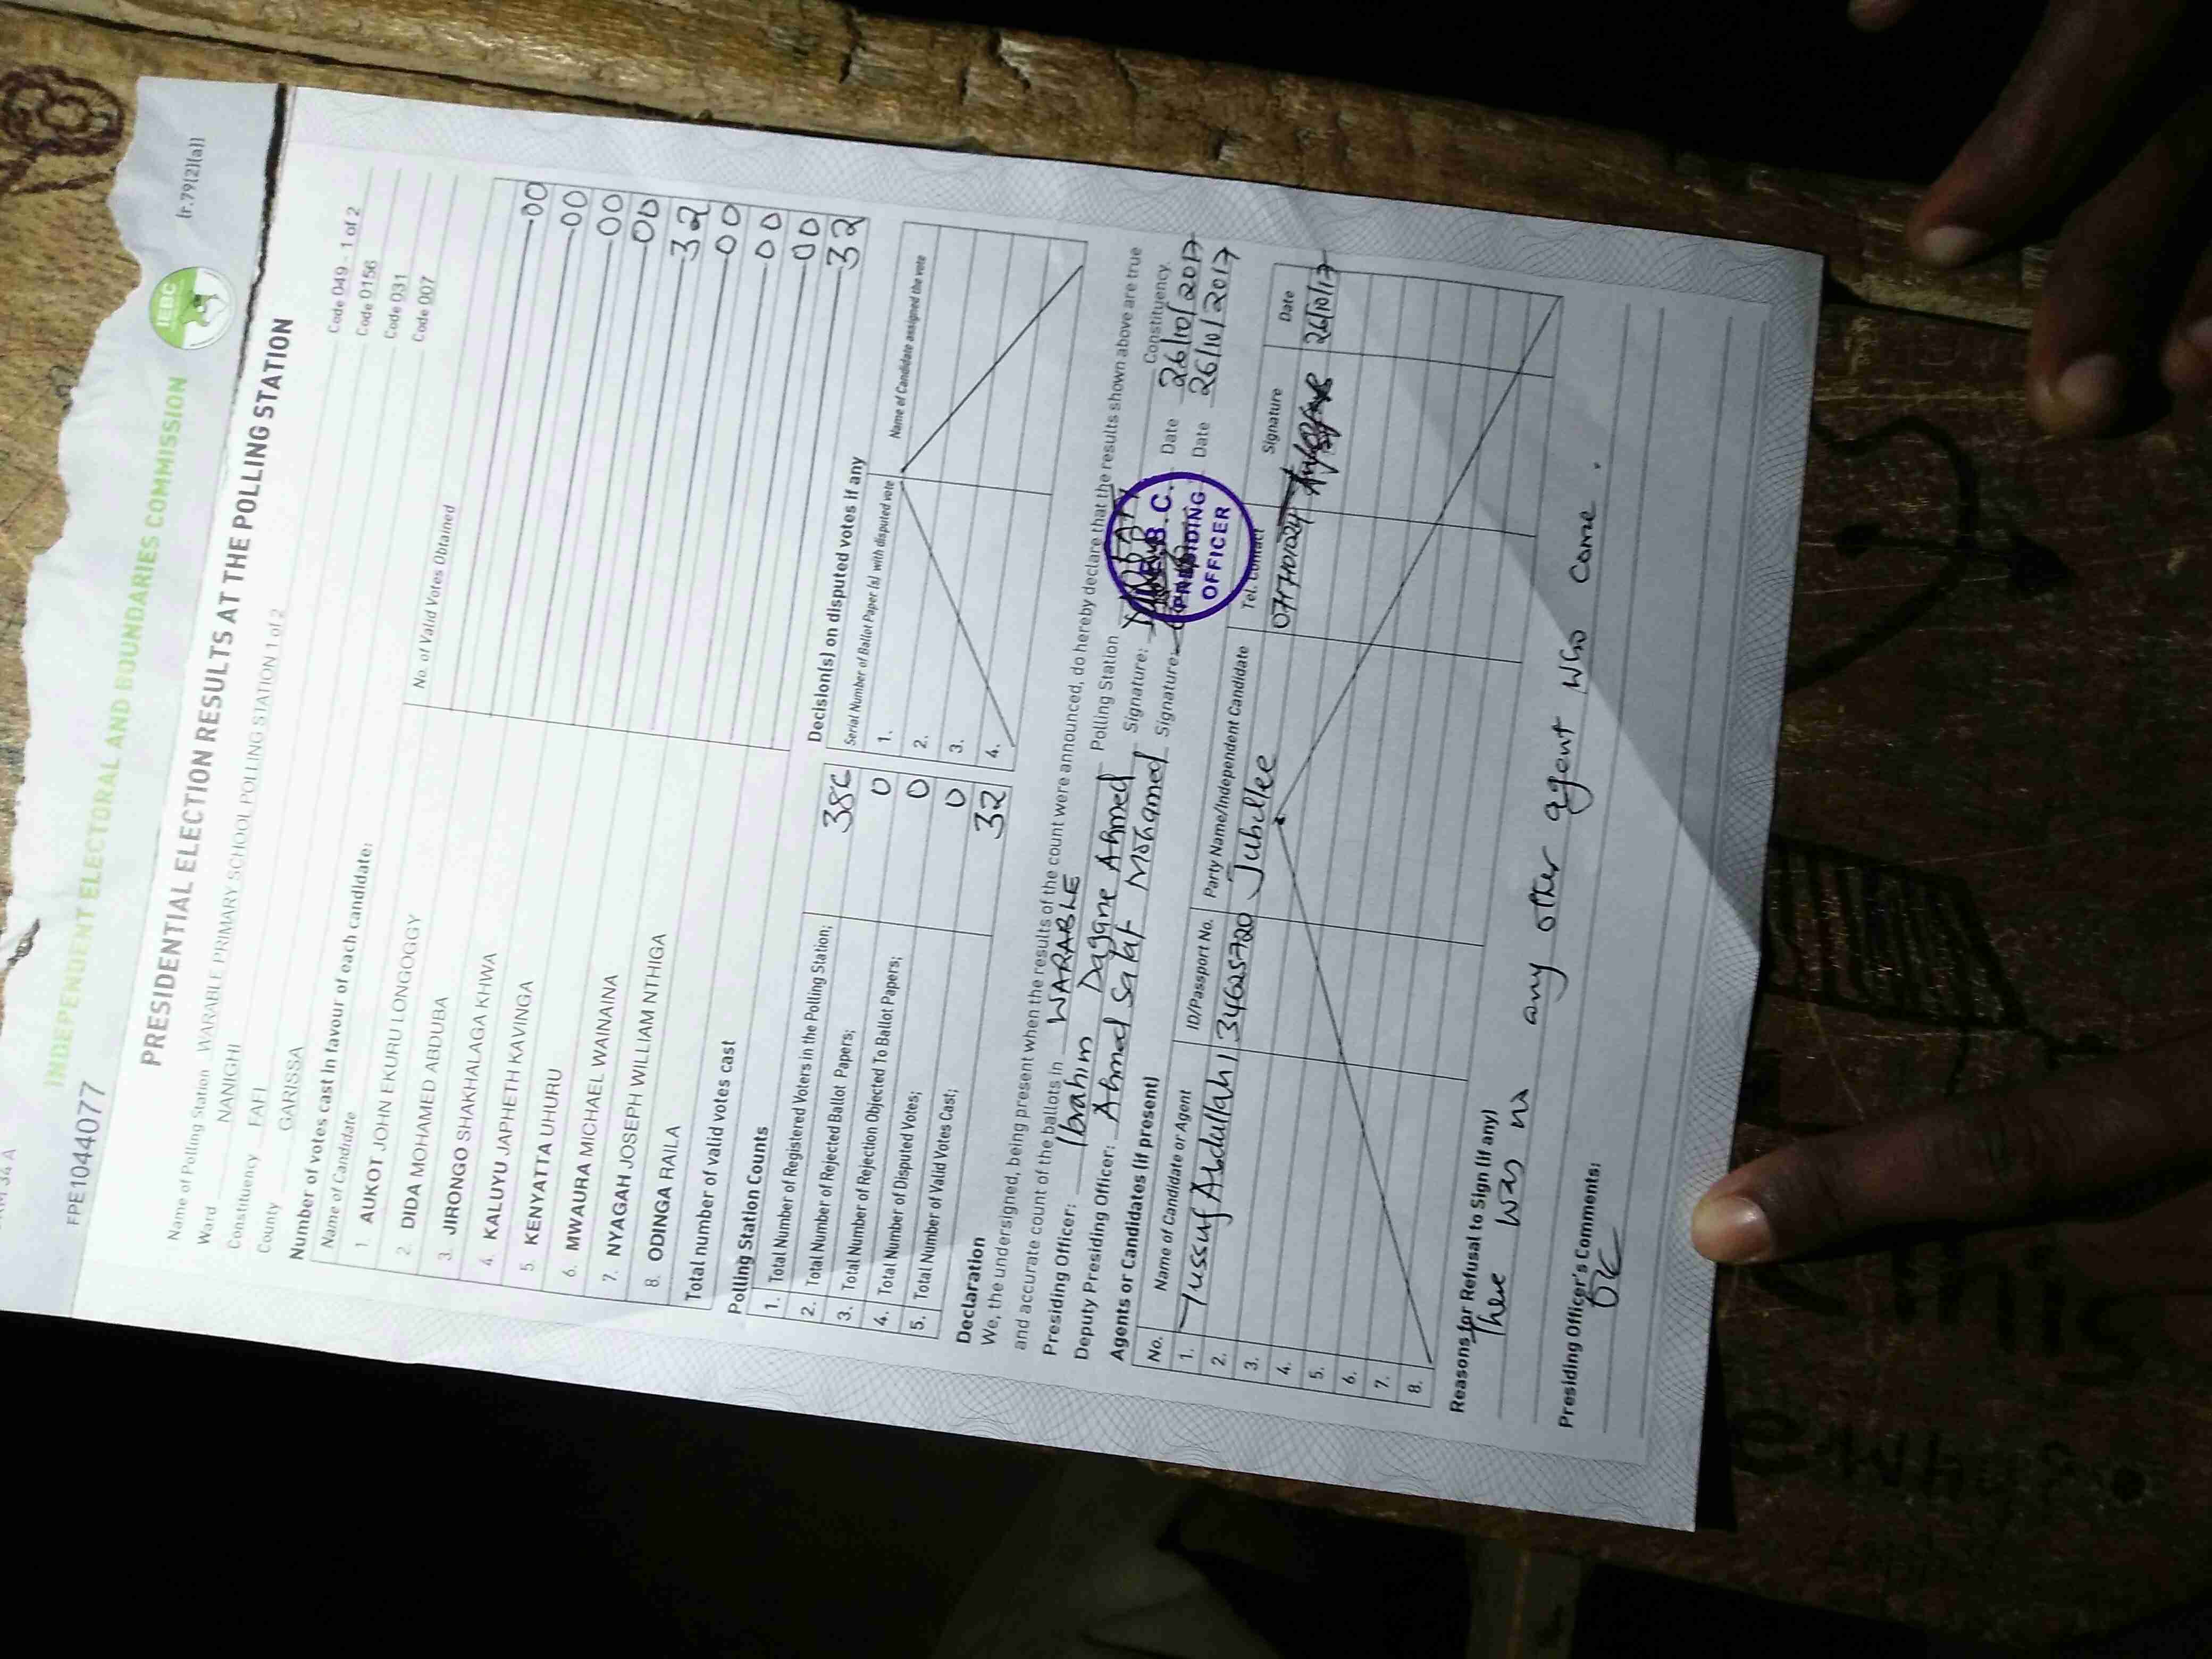 FPE1044077
INDEPENDENT ELECTORAL AND BOUNDARIES COMMISSION
IEBC
(r.79(2)(a))
PRESIDENTIAL ELECTION RESULTS AT THE POLLING STATION
Name of Polling Station WARABLE PRIMARY SCHOOL POLLING STATION 1 of 2 Code 049 - 1 of 2
Ward NANIGHI Code 0156
Constituency FAFI Code 031
County GARISSA Code 007
Number of votes cast in favour of each candidate:
Name of Candidate No. of Valid Votes Obtained
1. AUKOT JOHN EKURU LONGOGGY 00
2. DIDA MOHAMED ABDUBA 00
3. JIRONGO SHAKHALAGA KHWA 00
4. KALUYU JAPHETH KAVINGA 00
5. KENYATTA UHURU 32
6. MWAURA MICHAEL WAINAINA 00
7. NYAGAH JOSEPH WILLIAM NTHIGA 00
8. ODINGA RAILA 00
Total number of valid votes cast 32
Polling Station Counts
1. Total Number of Registered Voters in the Polling Station; 386
2. Total Number of Rejected Ballot Papers; 0
3. Total Number of Rejection Objected To Ballot Papers; 0
4. Total Number of Disputed Votes; 0
5. Total Number of Valid Votes Cast; 32
Decision(s) on disputed votes if any
Serial Number of Ballot Paper (s) with disputed vote Name of Candidate assigned the vote
1.
2.
3.
4.
Declaration
We, the undersigned, being present when the results of the count were announced, do hereby declare that the results shown above are true
and accurate count of the ballots in WARABLE Polling Station Constituency.
Presiding Officer: Ibrahim Dagane Ahmed Signature: Date 26/10/2017
Deputy Presiding Officer: Ahmed Salat Mohamed Signature: Date 26/10/2017
I.E.B.C.
PRESIDING
OFFICER
Agents or Candidates (if present)
No. Name of Candidate or Agent ID/Passport No. Party Name/Independent Candidate Tel. Contact Signature Date
1. Yussuf Abdullahi 34625720 Jubillee 26/10/17
2.
3.
4.
5.
6.
7.
8.
Reasons for Refusal to Sign (if any)
There was no any other agent who came.
Presiding Officer's Comments:
OK
Why?